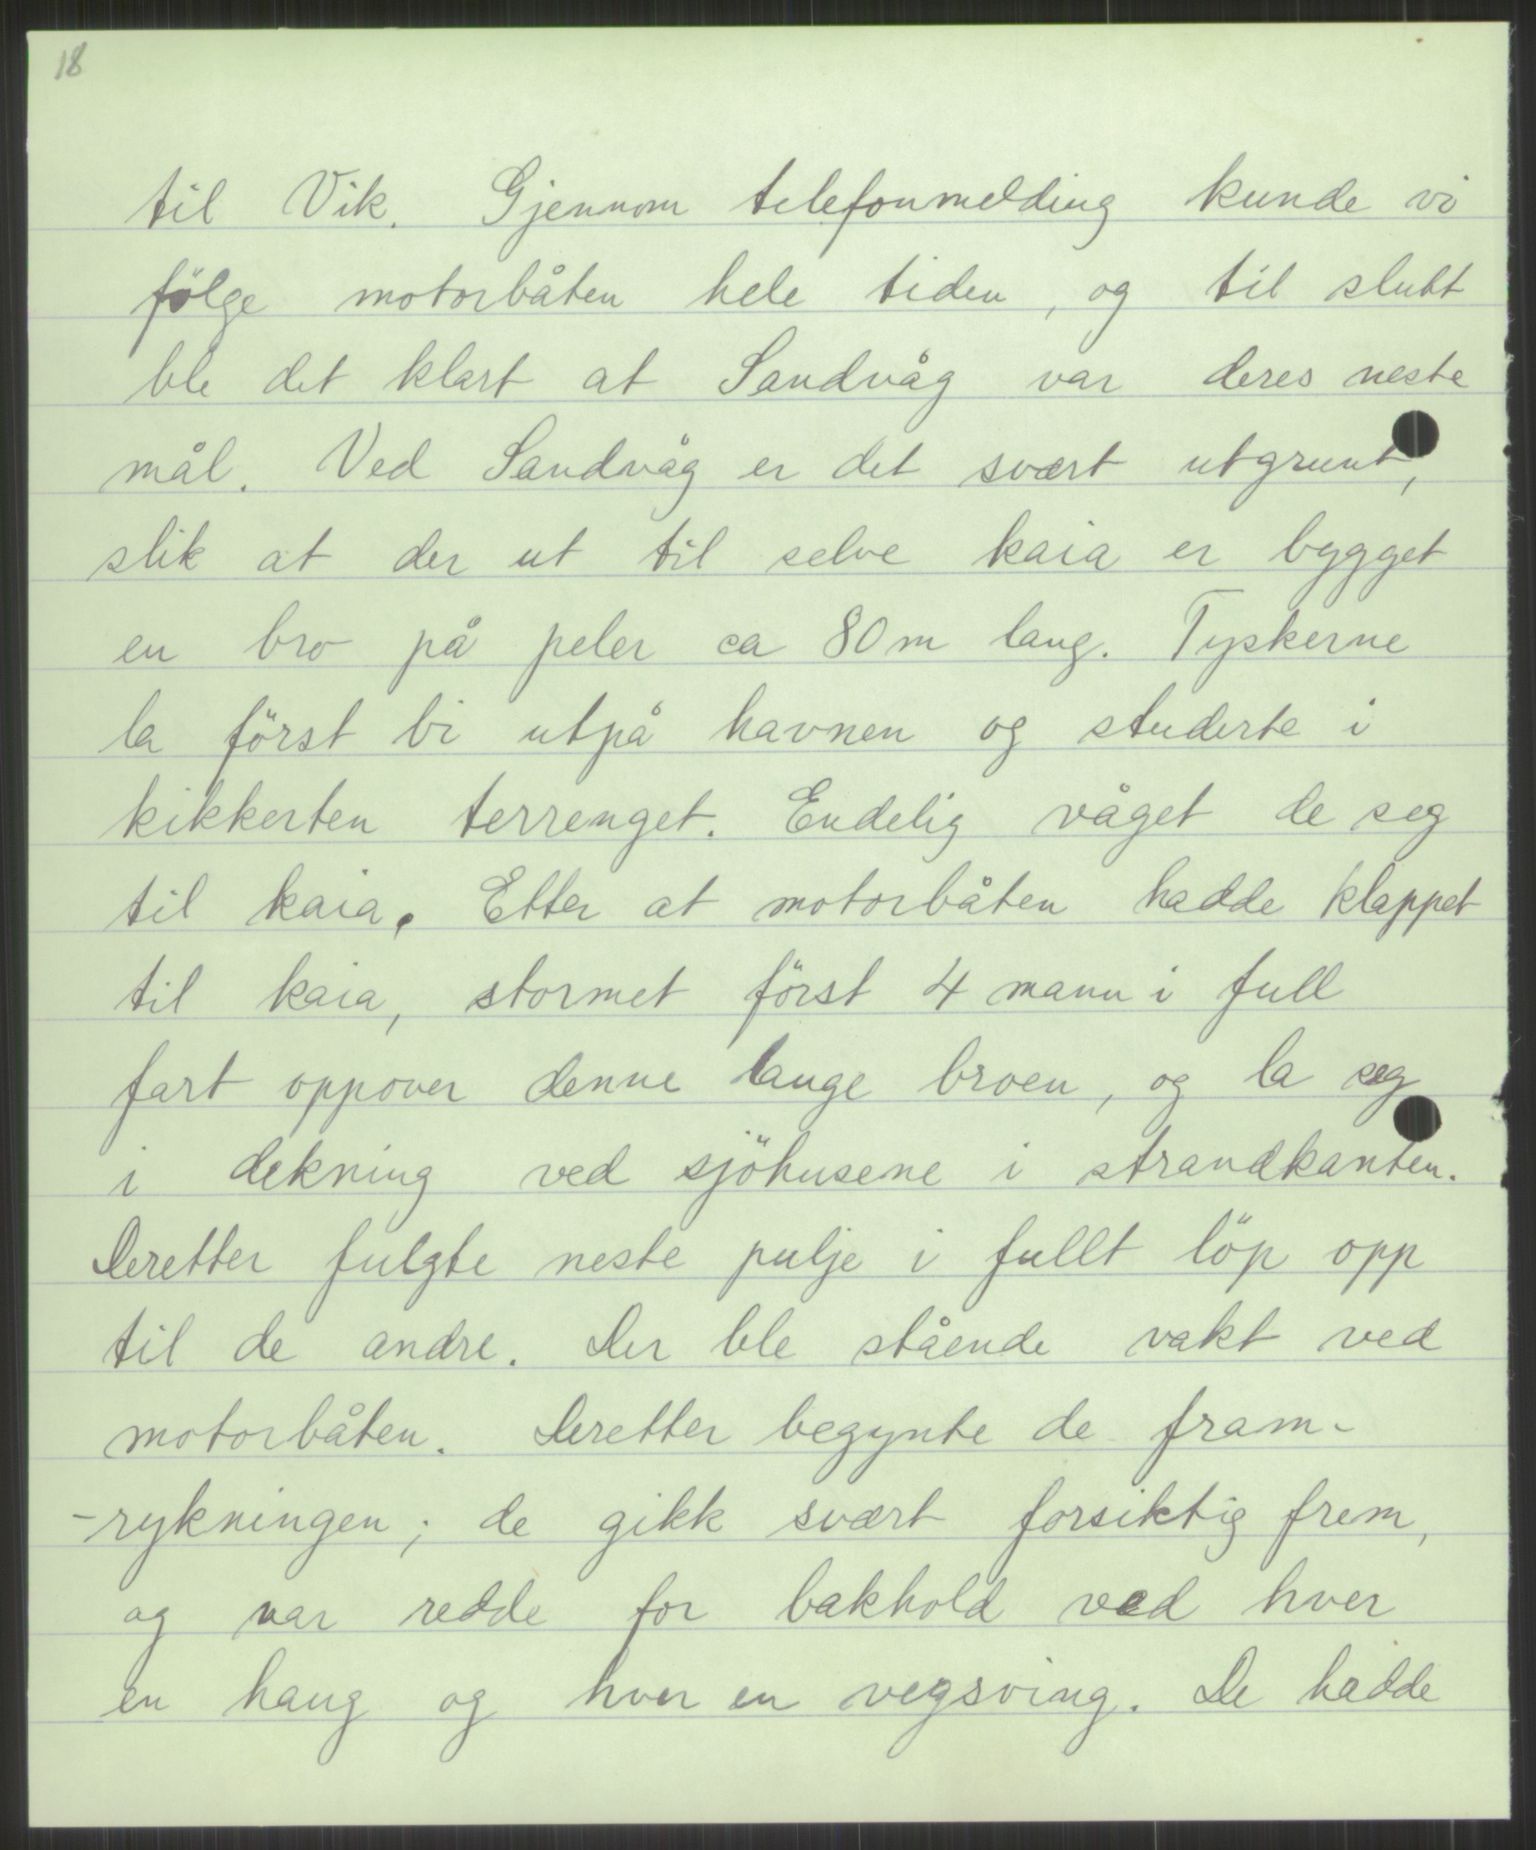 18
til Vik. Gjennom telefonmelding kunde vi
følge motorbåten hele tiden, og til slutt
ble det klart at Sandvåg var deres neste
mål. Ved Sandvåg er det svært utgrunt,
slik at der ut til selve kaia er bygget
en bro på peler ca 80 m lang. Tyskerne
la först bi utpå havnen og studerte i
kikkerten terrenget. Endelig våget de seg
til kaia. Etter at motorbåten hadde klappet
til kaia, stormet först 4 mann i full
fart oppover denne lange broen, og la seg
i dekning ved sjöhusene i strandkanten.
Deretter fulgte neste pulje i fullt löp opp
til de andre. Der ble stående vakt ved
motorbåten. Deretter begynte de fram-
-rykningen; de gikk svært forsiktig frem,
og var redde for bakhold ved hver
en haug og hver en vegsving. De hadde